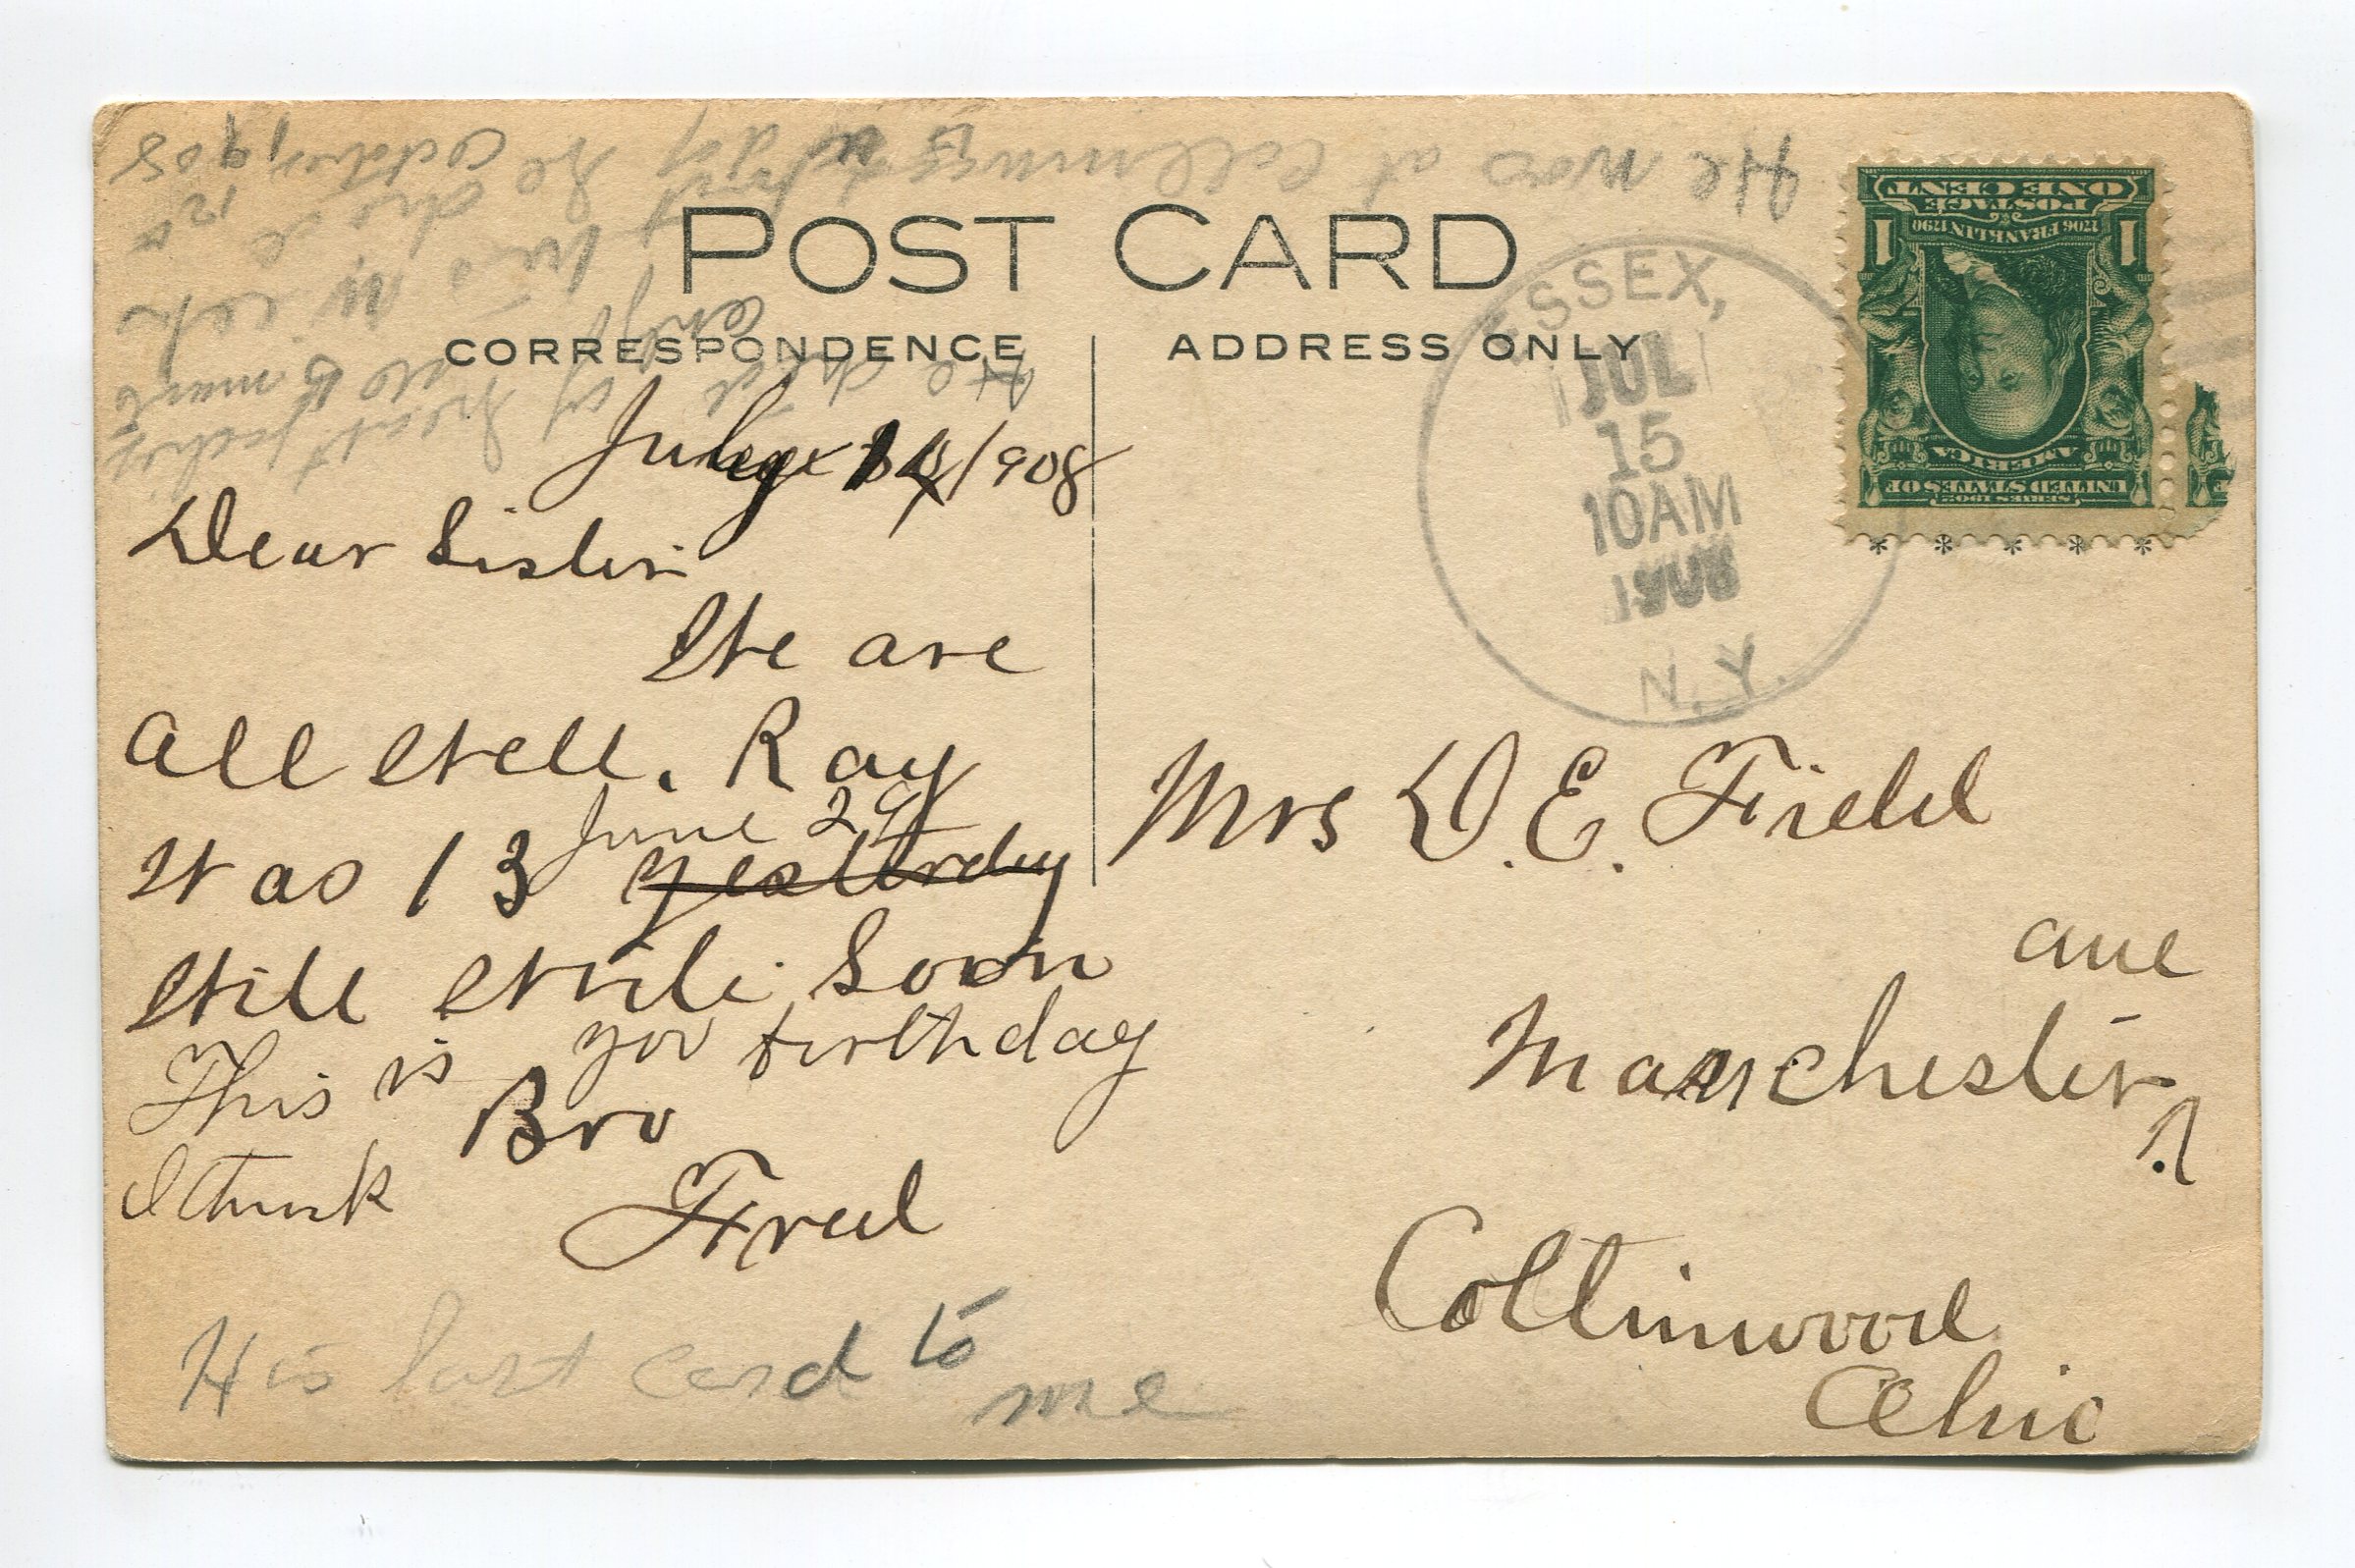 POST CARD
CORRESPONDENCE
ADDRESS ONLY
ESSEX,
JUL
15
10AM
1908
N.Y.
SERIES 1902
UNITED STATES OF
AMERICA
1706 FRANKLIN 1790
POSTAGE
ONE CENT
1 1
July 14/1908
Dear Sister
We are
all well. Ray
June 29
was 13 yesterday
Will write Soon
This is you birthday
I think
Bro
Fred
His last card to
me
Mrs D. E. Field
ave
Manchester
Collinwood
Ohio
He died
of heart
He was at